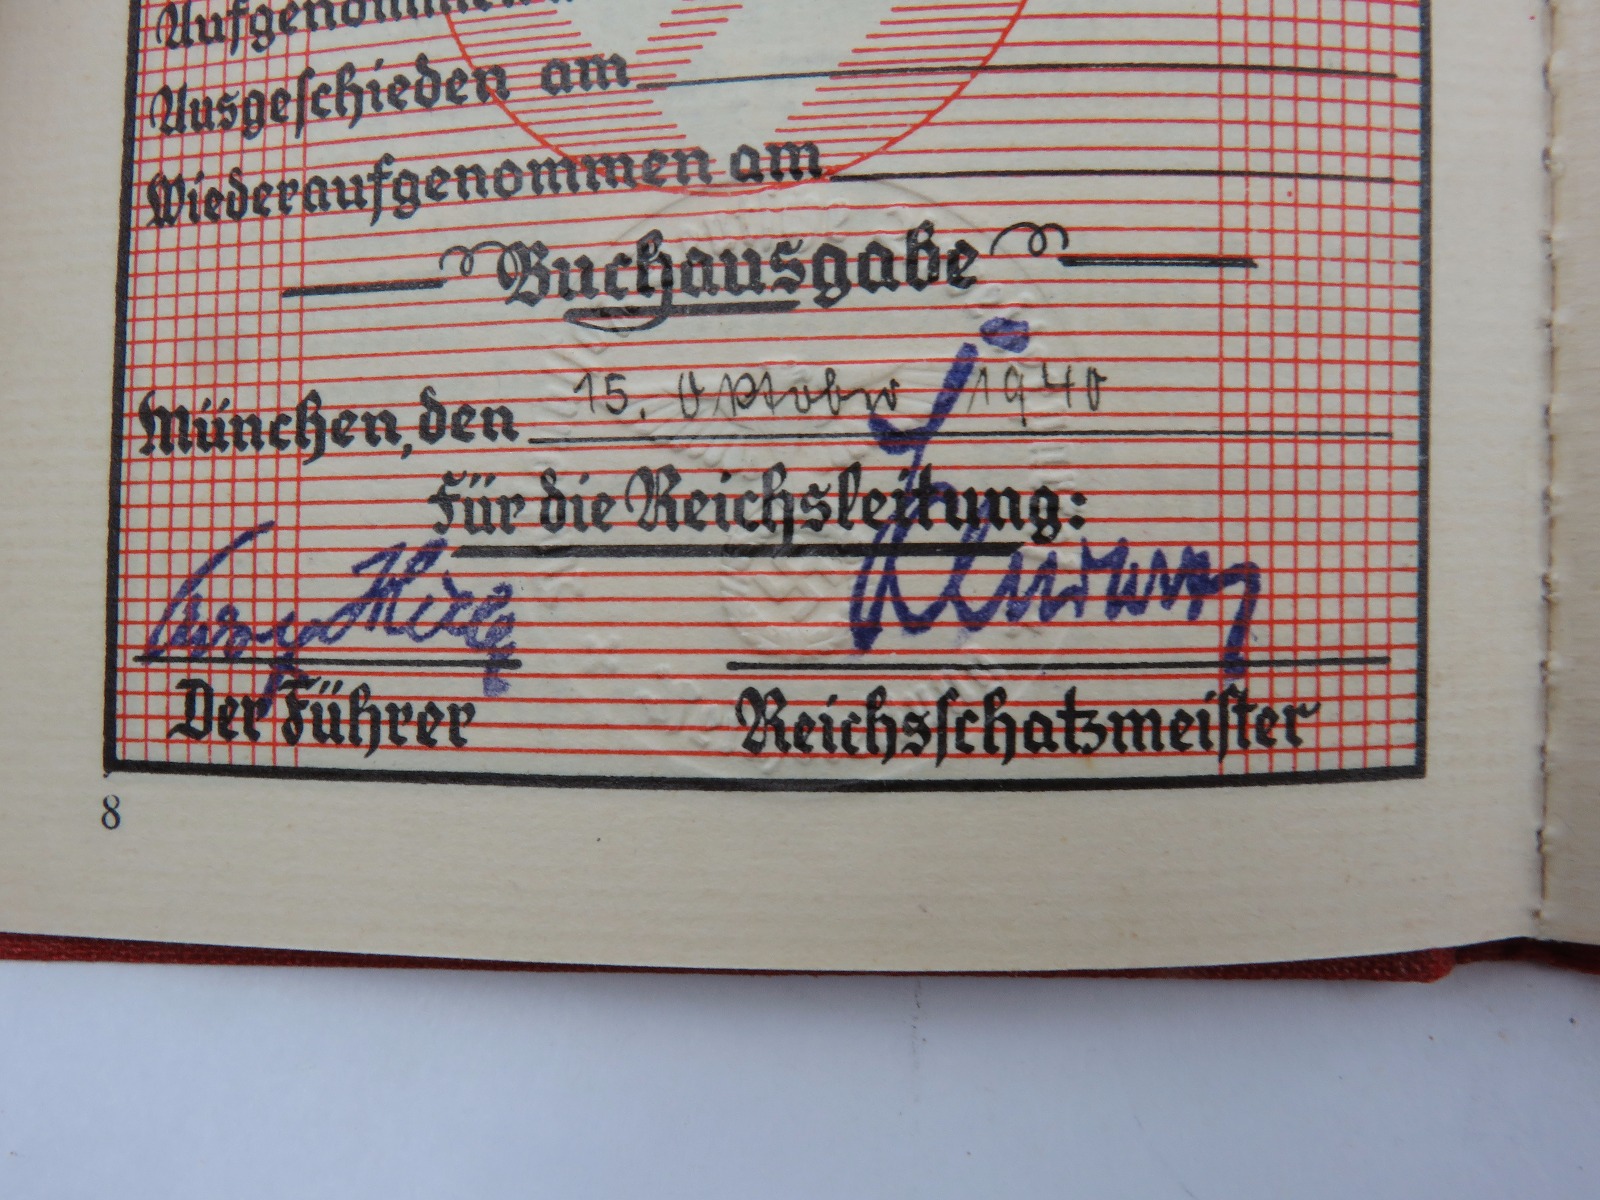 Aufgenommen
Ausgeschieden am
Wiederaufgenommen am
Buchausgabe
München, den 15. Oktober 1940
Für die Reichsleitung:
Der Führer
Reichsschatzmeister
8